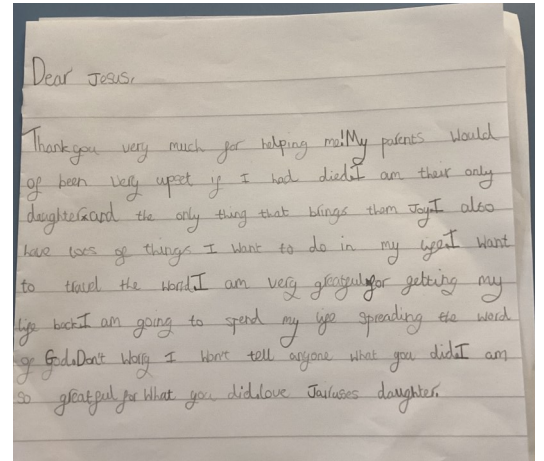 Dear Jesus,
Thank you very much for helping me!My parents would
of been very upset if I had died.I am their only
daughter and the only thing that brings them Joy.I also
have lots of things I want to do in my life.I want
to travel the world.I am very greatful for getting my
life back.I am going to spend my life spreading the word
of God.Don't worry I won't tell anyone what you did.I am
so greatful for what you did.love Jairuses daughter.